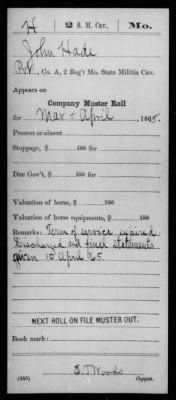 H 2 S. M. Cav. Mo.
John Hade
Pvt., Co. A, 2 Reg't Mo. State Militia Cav.
Appears on
Company Muster Roll
for Mar & April, 1865.
Present or absent
Stoppage, $ 100 for
Due Gov't, $ 100 for
Valuation of horse, $ 100
Valuation of horse equipments, $ 100
Remarks: Term of service expired.
Discharged and final statements
given 10 April 65.
NEXT ROLL ON FILE MUSTER OUT.
Book mark:
E. T. Woods
(356) Copyist.